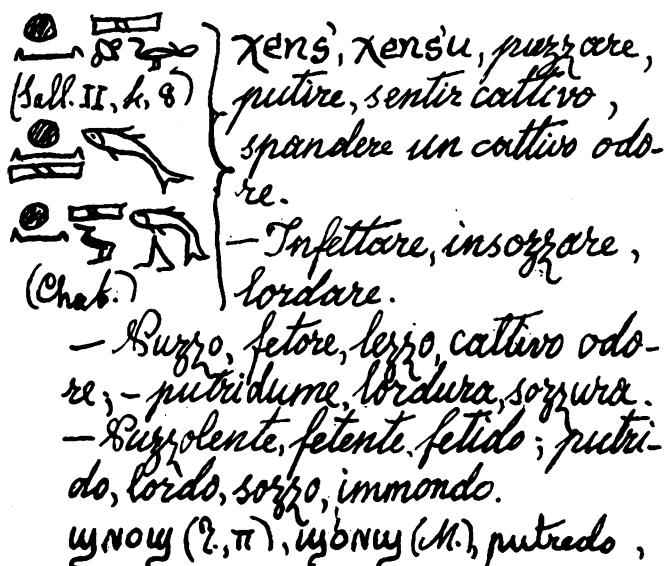 χens', χens'u, puzzare,
(Sall. II, 4, 8) putire, sentir cattivo,
spandere un cattivo odo-
re.
— Infettare, insozzare,
(Chab.) lordare.
— Puzzo, fetore, lezzo, cattivo odo-
re; — putridume, lordura, sozzura.
— Puzzolente, fetente, fetido; putri-
do, lordo, sozzo, immondo.
ϣⲛⲟϣ ( , π), ϣⲟⲛϣ (M.), putredo,